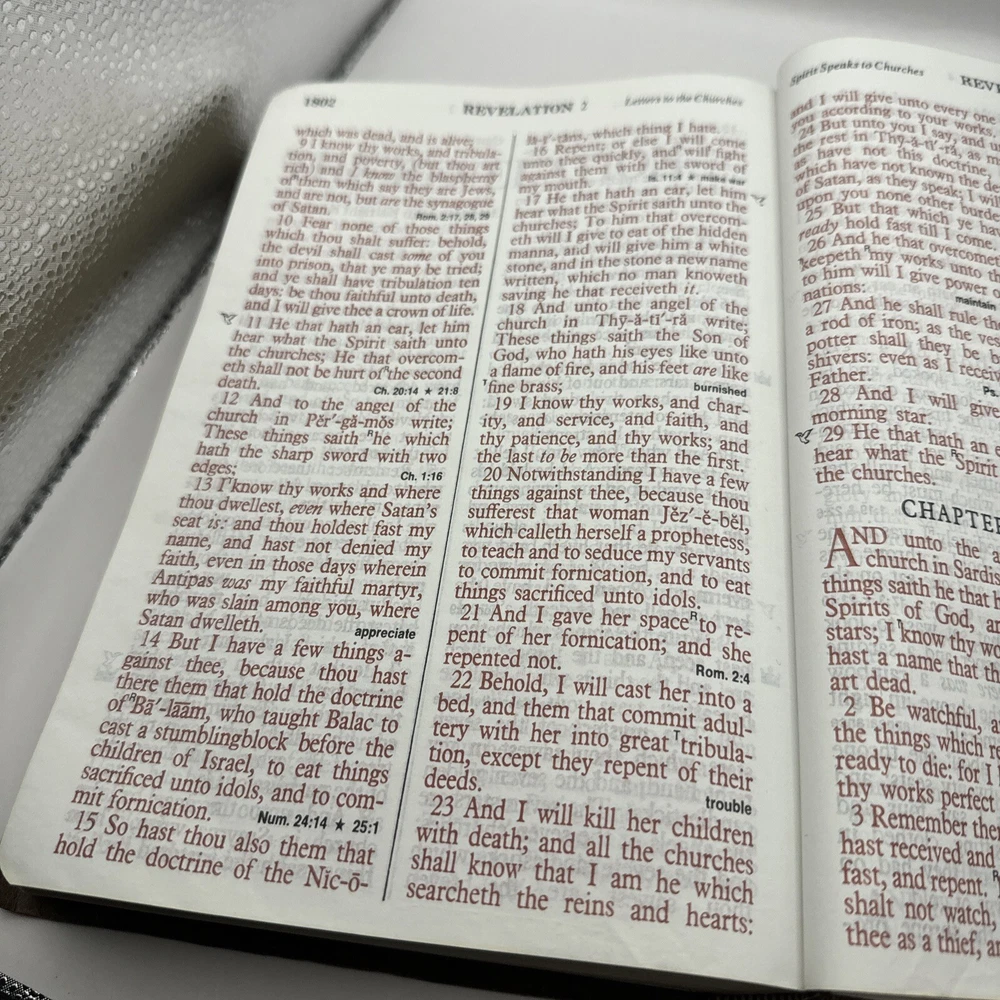 1802
REVELATION 2
Letters to the Churches
which was dead, and is alive;
9 I know thy works, and tribula-
tion, and poverty, (but thou art
rich) and I know the blasphemy
of them which say they are Jews,
and are not, but are the synagogue
of Satan. Rom. 2:17, 28, 29
10 Fear none of those things
which thou shalt suffer: behold,
the devil shall cast some of you
into prison, that ye may be tried;
and ye shall have tribulation ten
days: be thou faithful unto death,
and I will give thee a crown of life.
11 He that hath an ear, let him
hear what the Spirit saith unto
the churches; He that overcom-
eth shall not be hurt of the second
death. Ch. 20:14 ★ 21:8
12 And to the angel of the
church in Pĕr′-gă-mŏs write;
These things saith ᴿhe which
hath the sharp sword with two
edges; Ch. 1:16
13 I know thy works and where
thou dwellest, even where Satan's
seat is: and thou holdest fast my
name, and hast not denied my
faith, even in those days wherein
Antipas was my faithful martyr,
who was slain among you, where
Satan dwelleth. appreciate
14 But I have a few things a-
gainst thee, because thou hast
there them that hold the doctrine
of ᴿBā′-lāăm, who taught Balac to
cast a stumblingblock before the
children of Israel, to eat things
sacrificed unto idols, and to com-
mit fornication. Num. 24:14 ★ 25:1
15 So hast thou also them that
hold the doctrine of the Nĭc-ō-
lā-ī′-tāns, which thing I hate.
16 Repent; or else I will come
unto thee quickly, and will fight
against them with the sword of
my mouth. Is. 11:4 ★ make war
17 He that hath an ear, let him
hear what the Spirit saith unto the
churches; To him that overcom-
eth will I give to eat of the hidden
manna, and will give him a white
stone, and in the stone a new name
written, which no man knoweth
saving he that receiveth it.
18 And unto the angel of the
church in Thȳ-ă-tī′-ră write;
These things saith the Son of
God, who hath his eyes like unto
a flame of fire, and his feet are like
ᵀfine brass; burnished
19 I know thy works, and char-
ity, and service, and faith, and
thy patience, and thy works; and
the last to be more than the first.
20 Notwithstanding I have a few
things against thee, because thou
sufferest that woman Jĕz′-ĕ-bĕl,
which calleth herself a prophetess,
to teach and to seduce my servants
to commit fornication, and to eat
things sacrificed unto idols.
21 And I gave her space ᴿto re-
pent of her fornication; and she
repented not. Rom. 2:4
22 Behold, I will cast her into a
bed, and them that commit adul-
tery with her into great ᵀtribula-
tion, except they repent of their
deeds. trouble
23 And I will kill her children
with death; and all the churches
shall know that I am he which
searcheth the reins and hearts:
Spirit Speaks to Churches
REVE
and I will give unto every one
you according to your works.
24 But unto you I say, and u
the rest in Thȳ-ă-tī′-ră, as m
as have not this doctrine,
which have not known the de
of Satan, as they speak; I wil
upon you none other burde
25 But that which ye hav
ready hold fast till I come.
26 And he that overcomet
keepeth ᴿmy works unto th
to him will I give power o
nations: maintain
27 And he shall rule th
a rod of iron; as the ves
potter shall they be b
shivers: even as I receiv
Father. Ps.
28 And I will give
morning star.
29 He that hath an e
hear what the ᴿSpirit
the churches.
CHAPTE
AND unto the a
church in Sardis
things saith he that h
Spirits of God, an
stars; I know thy wo
hast a name that th
art dead.
2 Be watchful, a
the things which r
ready to die: for I
thy works perfect
3 Remember the
hast received and
fast, and repent. ᴿ
shalt not watch,
thee as a thief, an